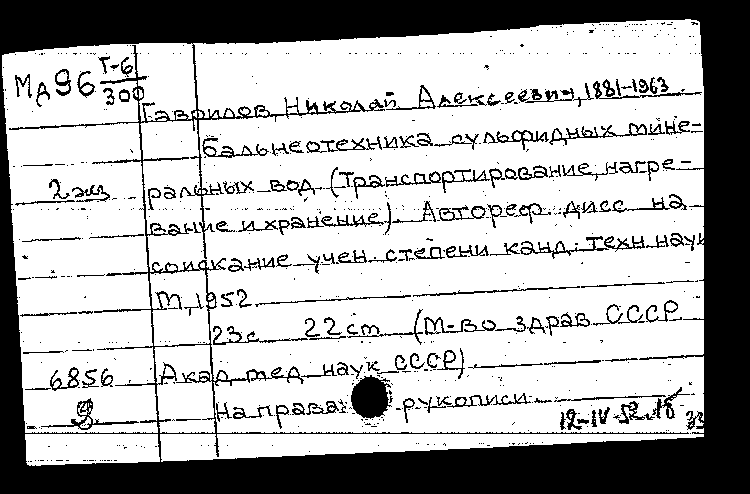 Мд96 Г-6/300
Гаврилов, Николай Алексеевич, 1881-1963.
бальнеотехника сульфидных мине-
2 экз ральных вод (Транспортирование, нагре-
вание и хранение). Автореф. дисс на
соискание учен. степени канд. техн. наук
М, 1952.
23с 22 cm (М-во здрав СССР
6856. Акад. мед. наук СССР).
На права рукописи.
12-IV-52. 33